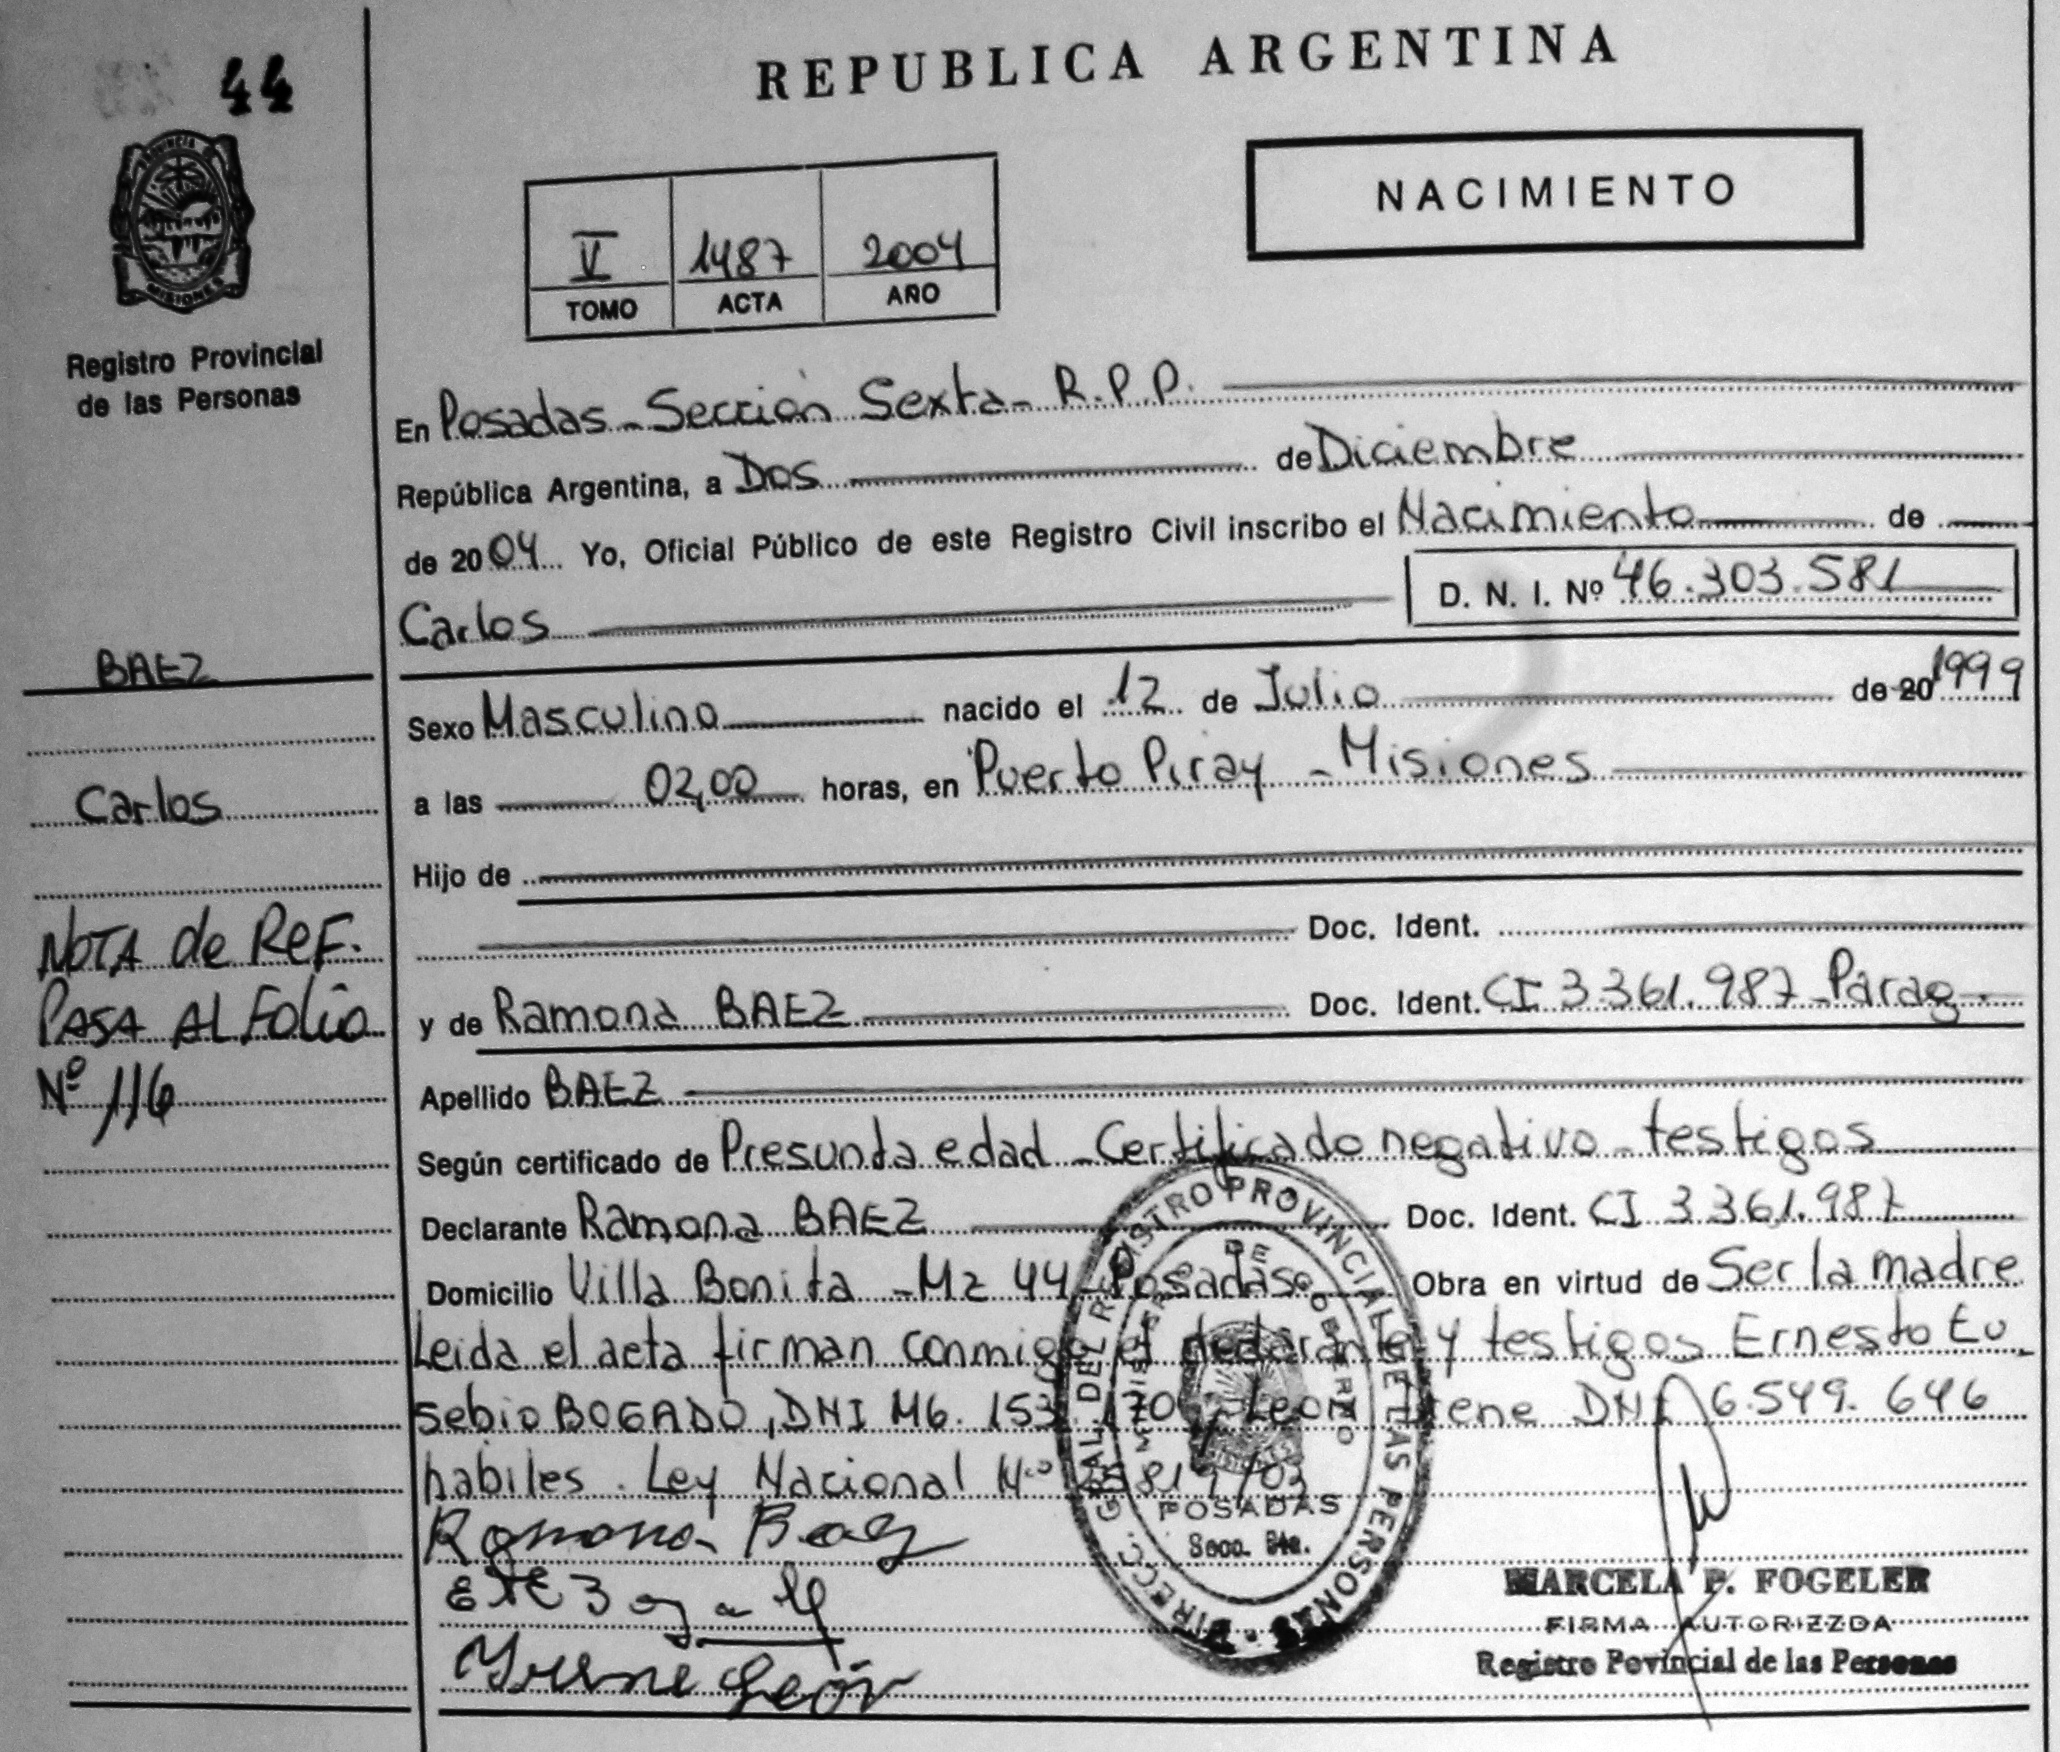 44
REPUBLICA ARGENTINA
NACIMIENTO
V 1487 2004
TOMO ACTA AÑO
PROVINCIA DE MISIONES
Registro Provincial
de las Personas
En Posadas - Sección Sexta - R.P.P.
República Argentina, a Dos de Diciembre
de 2004 Yo, Oficial Público de este Registro Civil inscribo el Nacimiento de
Carlos D. N. I. Nº 46.303.581
BAEZ
Carlos
NOTA de REF.
PASA AL Folio
Nº 116
Sexo Masculino nacido el 12 de Julio de 20 1999
a las 02,00 horas, en Puerto Piray - Misiones
Hijo de
Doc. Ident.
y de Ramona BAEZ Doc. Ident. CI 3.361.987 - Parag.
Apellido BAEZ
Según certificado de Presunta edad - Certificado negativo - testigos
Declarante Ramona BAEZ Doc. Ident. CI 3.361.987
Domicilio Villa Bonita - Mz 44 - Posadas Obra en virtud de Ser la madre
Leida el acta firman conmigo el declarante y testigos Ernesto Eu
sebio BOGADO, DNI M6. 153. Leon Irene DNI 6.549.646
habiles. Ley Nacional Nº
Ramona Baez
Irene León
DIRECC. GRAL DEL REGISTRO PROVINCIAL DE LAS PERSONAS
MINISTERIO DE GOBIERNO
POSADAS
Secc. 6ta.
MARCELA P. FOGELER
FIRMA AUTORIZZDA
Registro Povincial de las Personas